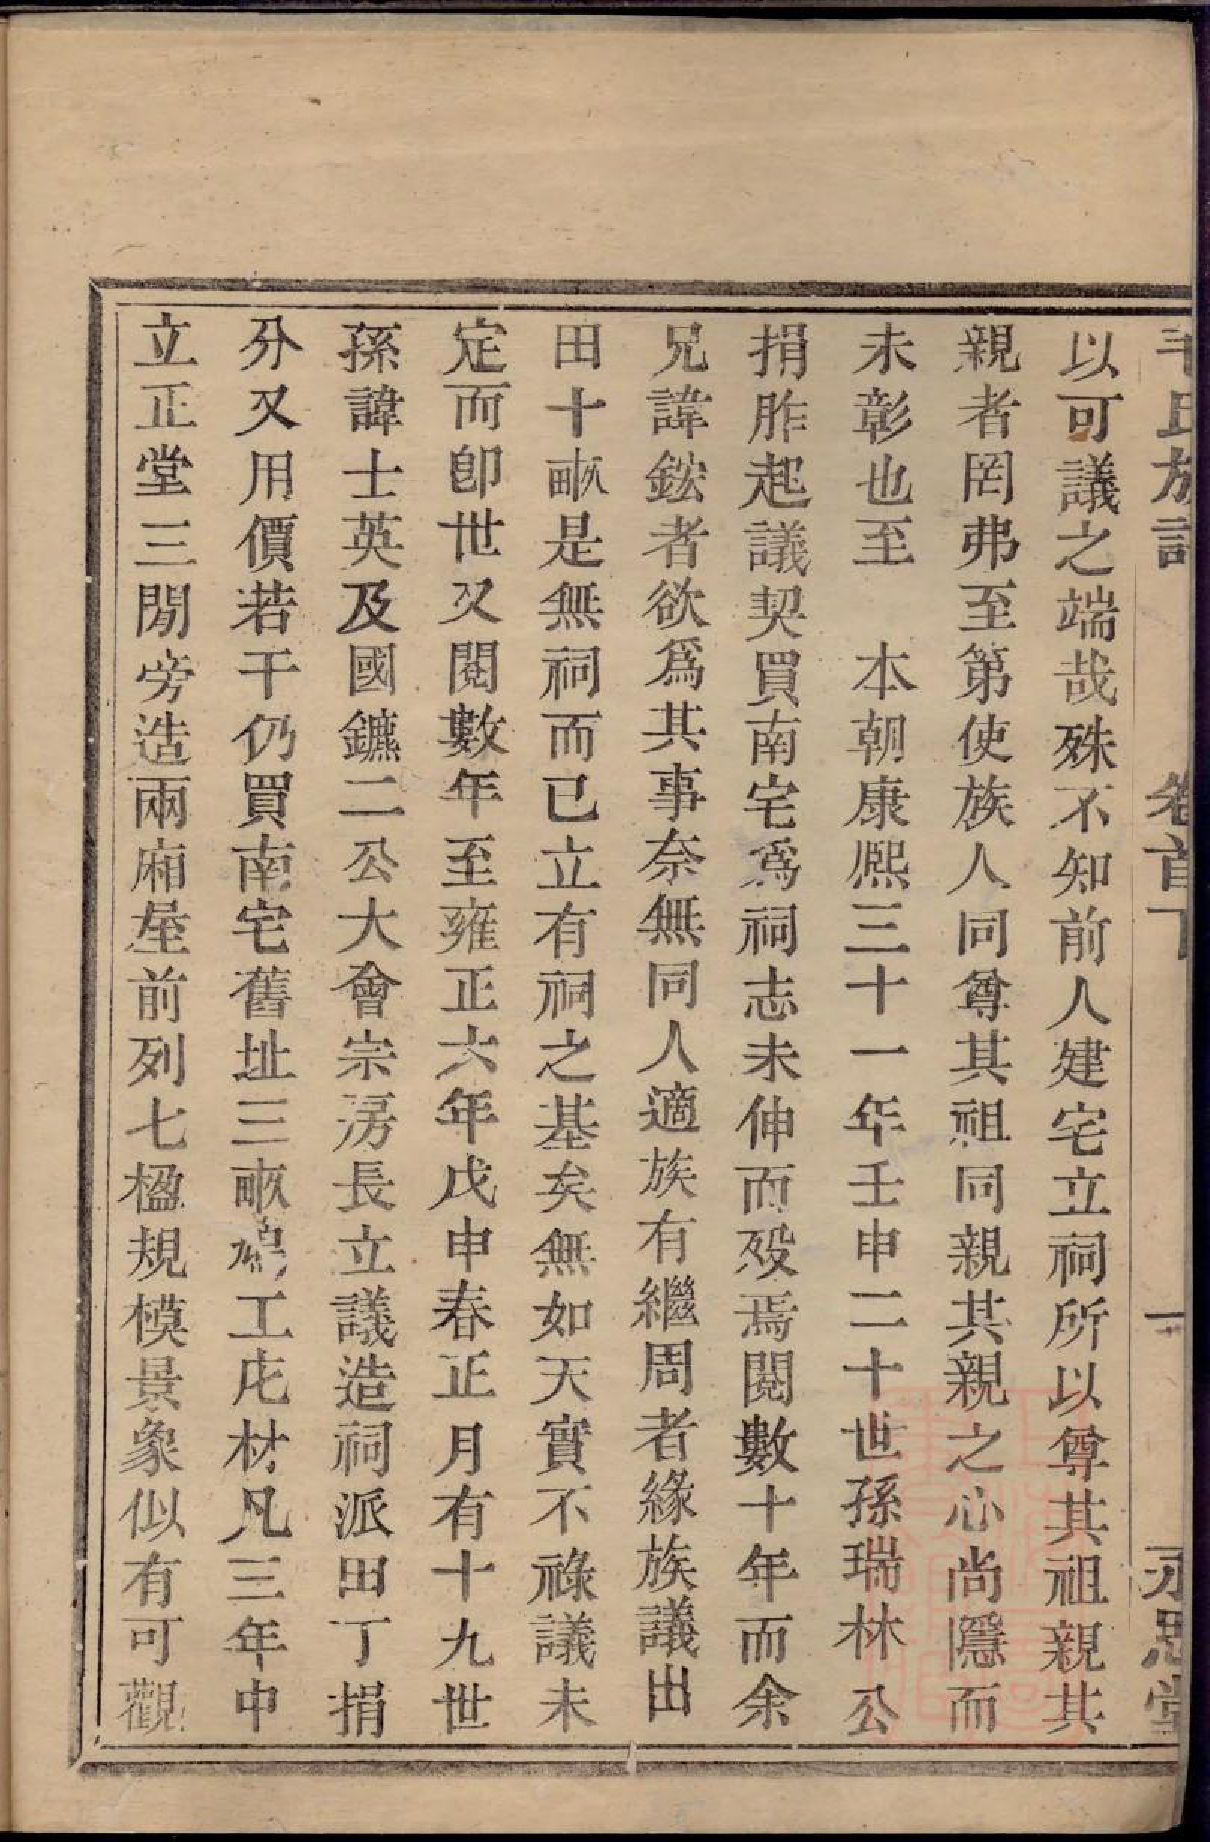 氏族譜 卷首下 一 永思堂
以可議之端哉殊不知前人建宅立祠所以尊其祖親其
親者罔弗至第使族人同尊其祖同親其親之心尚隱而
未彰也至 本朝康熙三十一年壬申二十世孫瑞林公
捐胙起議契買南宅爲祠志未伸而歿焉閱數十年而余
兄諱鋐者欲爲其事奈無同人適族有繼周者緣族議出
田十畝是無祠而已立有祠之基矣無如天實不祿議未
定而卽世又閱數年至雍正六年戊申春正月有十九世
孫諱士英及國鑣二公大會宗房長立議造祠派田丁捐
分又用價若干仍買南宅舊址三畝鳩工庀材凡三年中
立正堂三間旁造兩廂屋前列七楹規模景象似有可觀